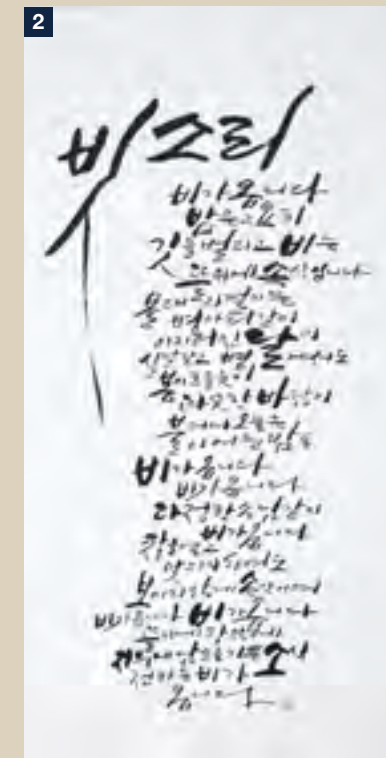 2
빗소리
비가 옵니다
밤은 고요히
깃을 벌리고 비는
뜰 위에 속삭입니다
몰래 지껄이는
병아리같이
이지러진 달이
실낱같고 별에서도
봄이 흐를 듯이
따뜻한 바람이
불더니 오늘은
이 어두운 밤을
비가 옵니다
비가 옵니다
다정한 손님같이
비가 옵니다
맞으려 하여도
보이지 않게 속삭이며
비가 옵니다 비가 옵니다
뜰 위에 창 밖에
남 모를 기쁜 소식
전하는 비가
옵니다